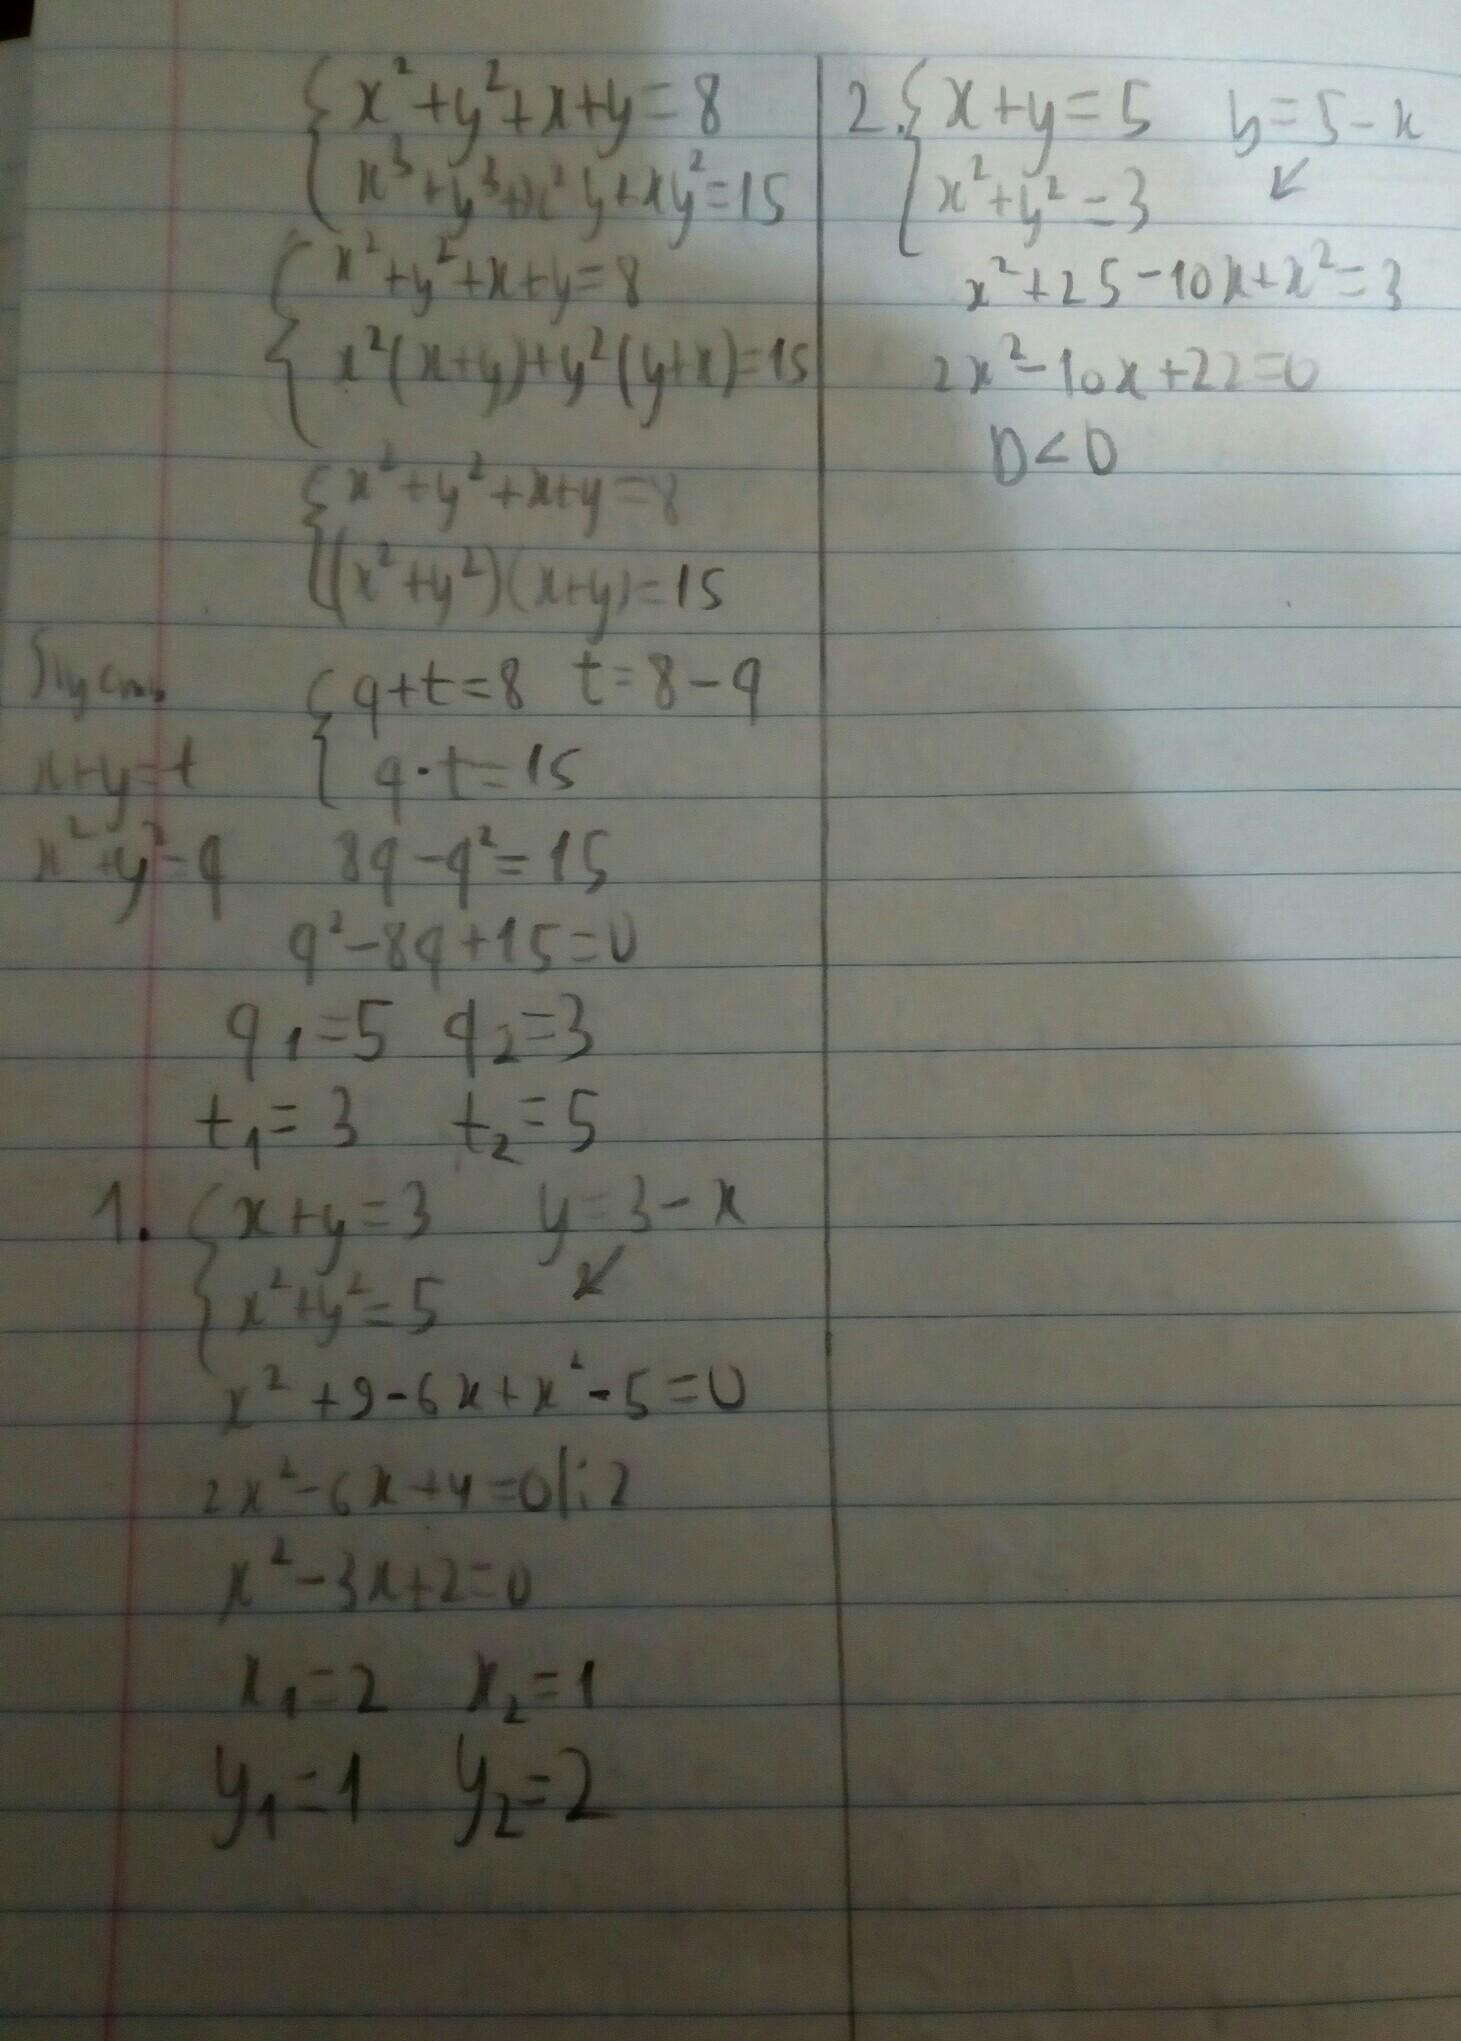 x²+y²+x+y=8
x³+y³+x²y+xy²=15
x²+y²+x+y=8
x²(x+y)+y²(y+x)=15
x²+y²+x+y=8
(x²+y²)(x+y)=15
Пусть
x+y=t
x²+y²=q
q+t=8 t=8-q
q·t=15
8q-q²=15
q²-8q+15=0
q₁=5 q₂=3
t₁=3 t₂=5
1. x+y=3 y=3-x
↙
x²+y²=5
x²+9-6x+x²-5=0
2x²-6x+4=0|:2
x²-3x+2=0
x₁=2 x₂=1
y₁=1 y₂=2
2. x+y=5 y=5-x
x²+y²=3 ↙
x²+25-10x+x²=3
2x²-10x+22=0
D<0